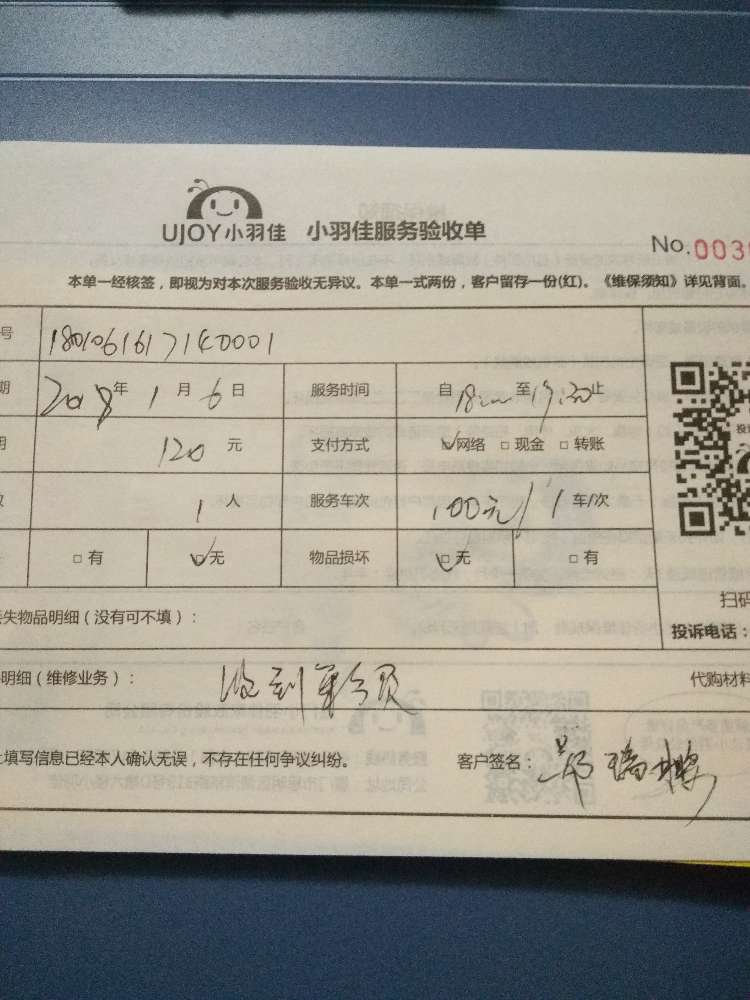 UJOY小羽佳 小羽佳服务验收单
No.003
本单一经核签，即视为对本次服务验收无异议。本单一式两份，客户留存一份(红)。《维保须知》详见背面。
号 1801061617140001
期 2018年 1月 6日 服务时间 自 18:00 至 19:20 止
用 120 元 支付方式 ☑网络 □现金 □转账
数 1 人 服务车次 100元/1 车/次
□有 ☑无 物品损坏 ☑无 □有
失物品明细（没有可不填）：
扫码
投诉电话：
明细（维修业务）： 收到
代购材料
上填写信息已经本人确认无误，不存在任何争议纠纷。 客户签名：